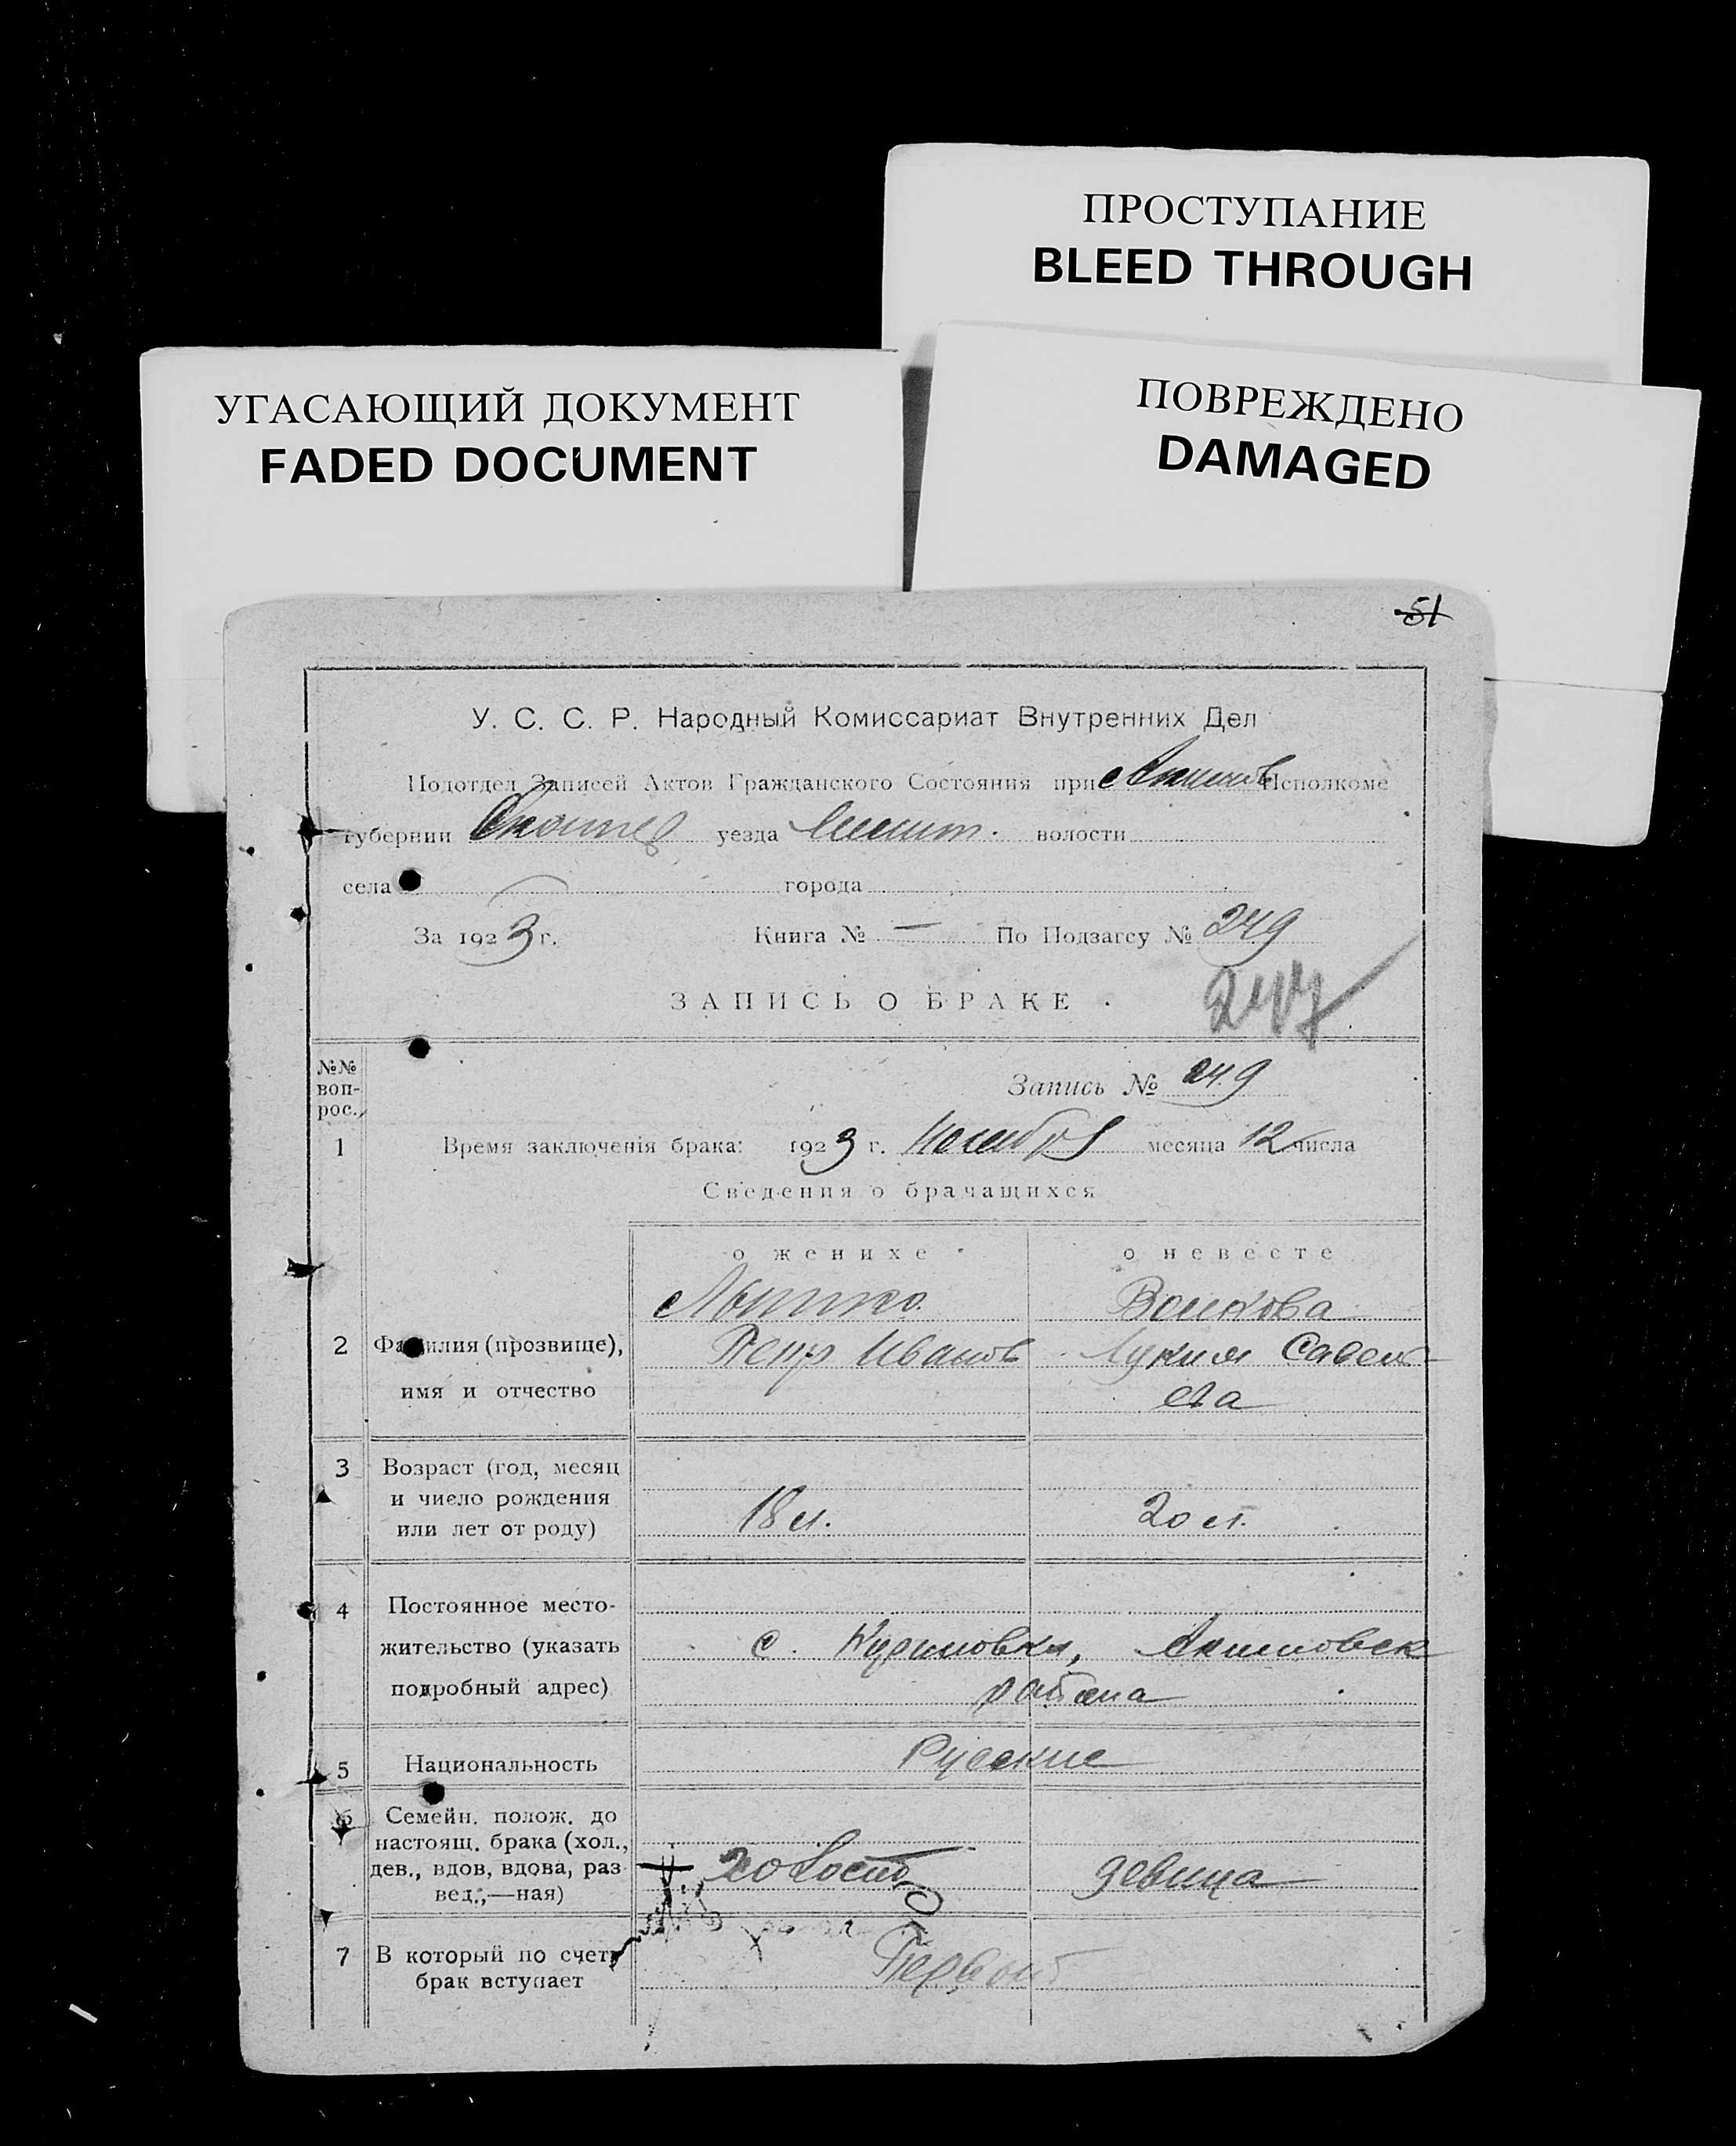 ПРОСТУПАНИЕ
BLEED THROUGH
УГАСАЮЩИЙ ДОКУМЕНТ
FADED DOCUMENT
ПОВРЕЖДЕНО
DAMAGED
51
У. С. С. Р. Народный Комиссариат Внутренних Дел
Подотдел Записей Актов Гражданского Состояния при Акимов Исполкоме
губернии уезда Мелит. волости
села города
За 1923 г. Книга № — По Подзагсу № 249
ЗАПИСЬ О БРАКЕ
247
№№ воп-рос.
Запись № 249
1 Время заключенія брака: 1923 г. Ноября месяца 12 числа
Сведения о брачащихся
о женихе о невесте
Волкова
2 Фамилия (прозвище), Петр Иванов Лукия Савель-
имя и отчество ева
3 Возраст (год, месяц
и число рождения
или лет от роду) 18 л. 20 л.
4 Постоянное место-
жительство (указать с. Акимовск
подробный адрес) района
5 Национальность Русские
6 Семейн. полож. до
настоящ. брака (хол.,
дев., вдов, вдова, раз- холост девица
вед.,—ная)
7 В который по счету Первый
брак вступает